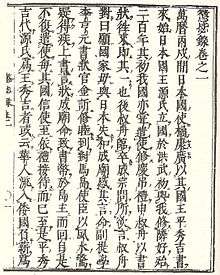 懲毖錄卷之一
萬曆丙戌間日本國使橘康廣以其國王平秀吉書
來始日本國王源氏立國於洪武初與我國修隣好殆
二百年其初我國亦嘗遣使修慶弔禮申叔舟以書
狀往來即其一也後叔舟臨卒成宗問所欲言叔舟
對曰願國家毋與日本失和成廟感其言命副提學
李亨元書狀官金訢修睦到對馬島使臣以風水驚
疑得疾上書言狀成廟命致書幣於島主而回自是
不復遣使每其國信使至依禮接待而已至是平秀
吉代源氏爲王秀吉者或云華人流入倭國負薪爲